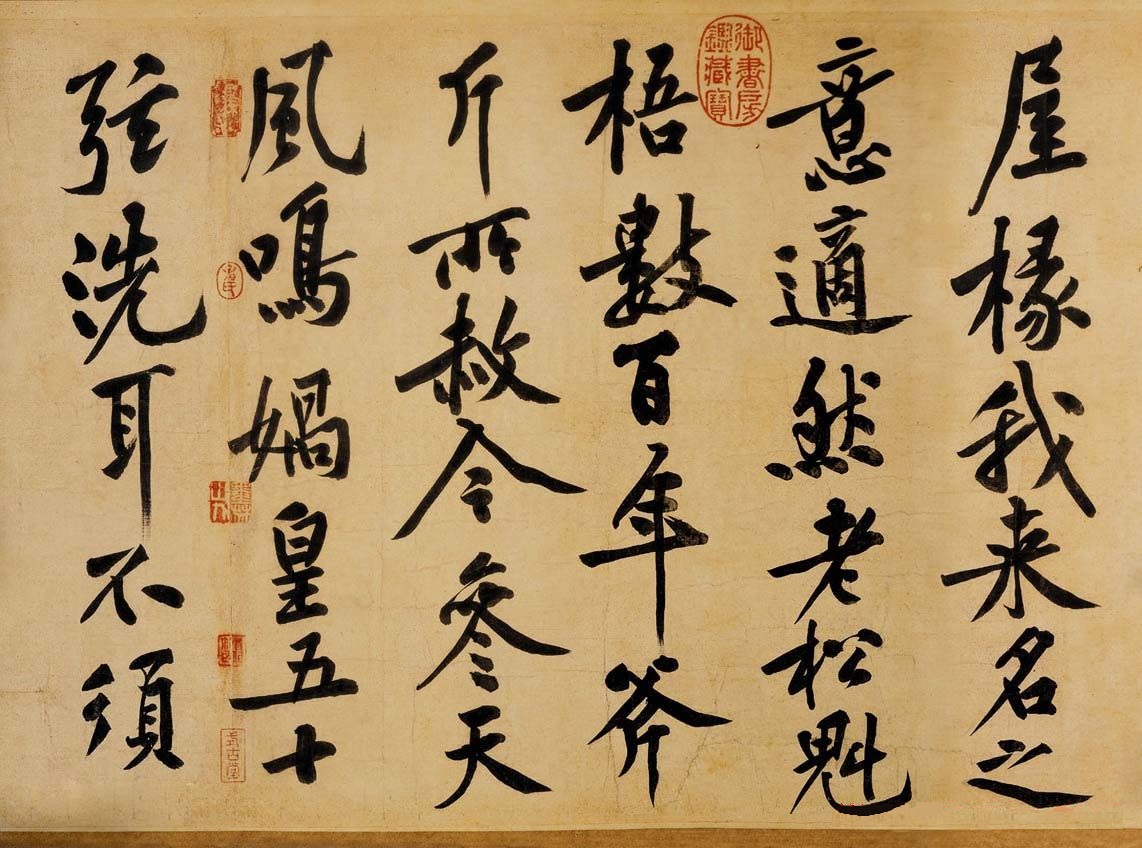 屋椽我来名之
意適然老松魁
梧數百年斧
斤所赦今參天
風鳴媧皇五十
弦洗耳不須
御書房鑑藏寶
式古堂